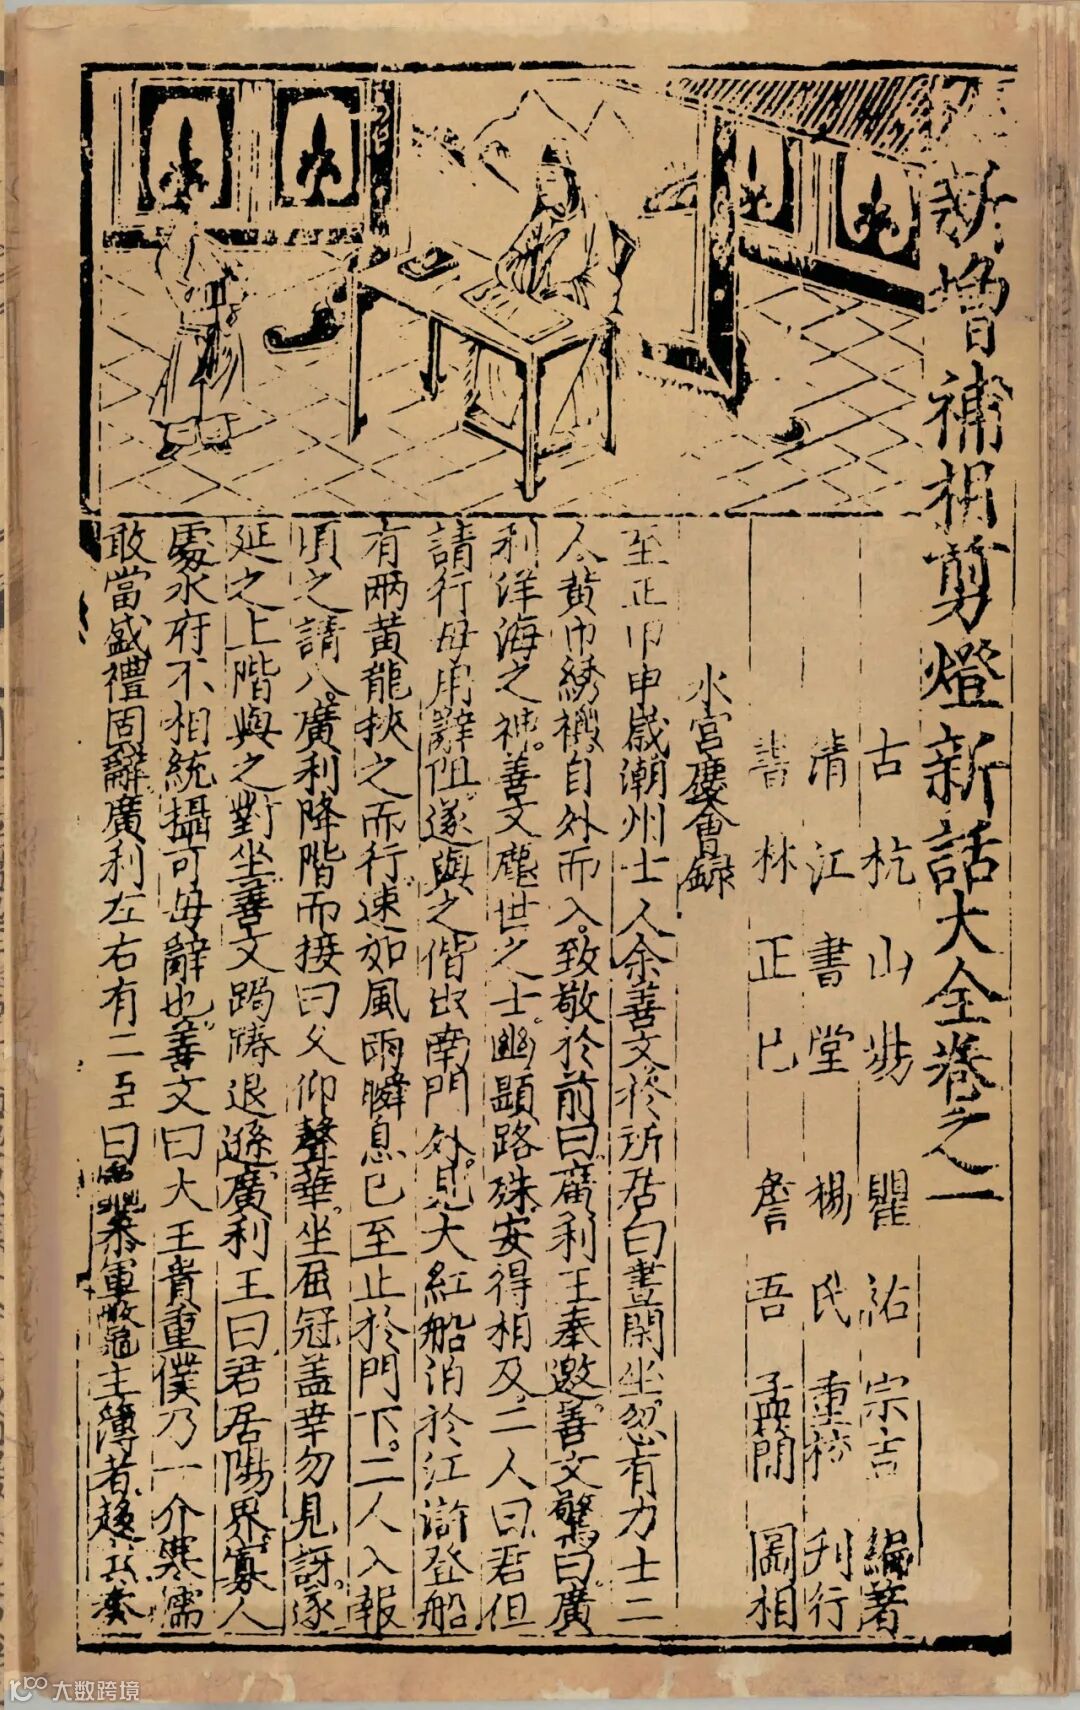 新增補相剪燈新話大全卷之一
古杭山陽瞿祐宗吉編著
清江書堂楊氏重校刊行
書林正己詹吾孟簡圖相
水宮慶會錄
至正甲申歲潮州士人余善文於所居白晝閑坐忽有力士二
人黃巾綉襖自外而入致敬於前曰廣利王奉邀善文驚曰廣
利洋海之神善文塵世之士幽顯路殊安得相及二人曰君但
請行毋用辭阻遂與之偕出南門外見大紅船泊於江滸登船
有兩黃龍挾之而行速如風雨瞬息已至止於門下二人入報
頃之請入廣利降階而接曰久仰聲華坐屈冠盖幸勿見訝遂
延之上階與之對坐善文跼蹐退遜廣利王曰君居陽界寡人
處水府不相統攝可毋辭也善文曰大王貴重僕乃一介寒儒
敢當盛禮固辭廣利左右有二臣曰黿參軍鱉主簿者趍出奏
大数跨境